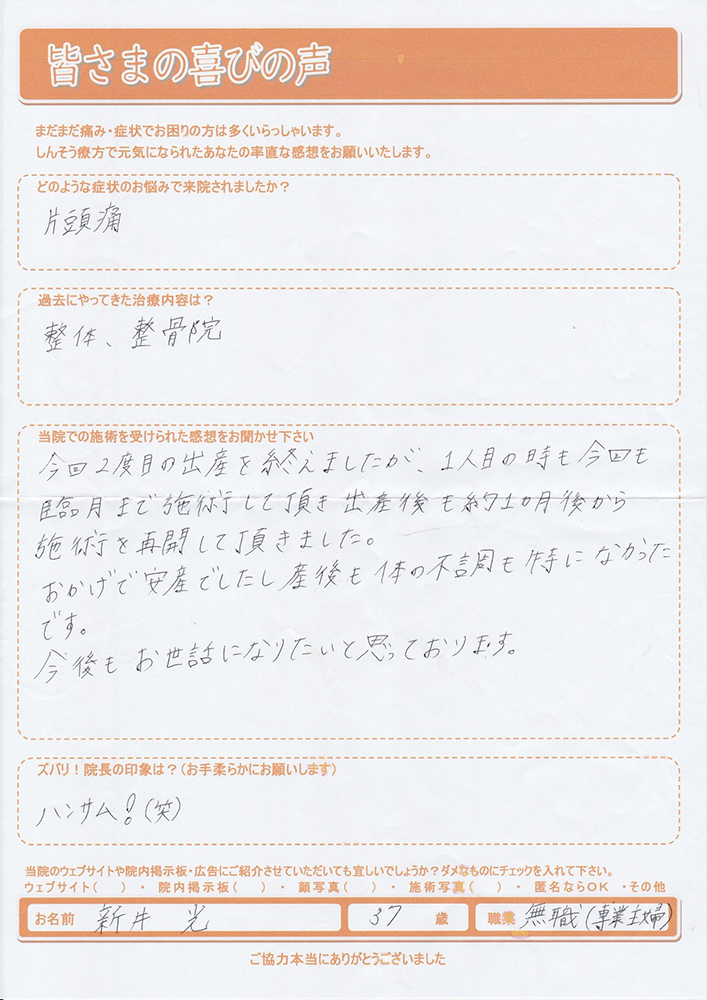 皆さまの喜びの声
まだまだ痛み・症状でお困りの方は多くいらっしゃいます。
しんそう療方で元気になられたあなたの率直な感想をお願いいたします。
どのような症状のお悩みで来院されましたか?
片頭痛
過去にやってきた治療内容は?
整体、整骨院
当院での施術を受けられた感想をお聞かせ下さい
今回2度目の出産を終えましたが、1人目の時も今回も
臨月まで施術して頂き出産後も約1ヵ月後から
施術を再開して頂きました。
おかげで安産でしたし産後も体の不調も特になかった
です。
今後もお世話になりたいと思っております。
ズバリ!院長の印象は?(お手柔らかにお願いします)
ハンサム!(笑)
当院のウェブサイトや院内掲示板・広告にご紹介させていただいても宜しいでしょうか?ダメなものにチェックを入れて下さい。
ウェブサイト( )・ 院内掲示板( )・ 顔写真( )・ 施術写真( )・ 匿名ならOK ・その他
お名前 新井 光 37 歳 職業 無職(専業主婦)
ご協力本当にありがとうございました